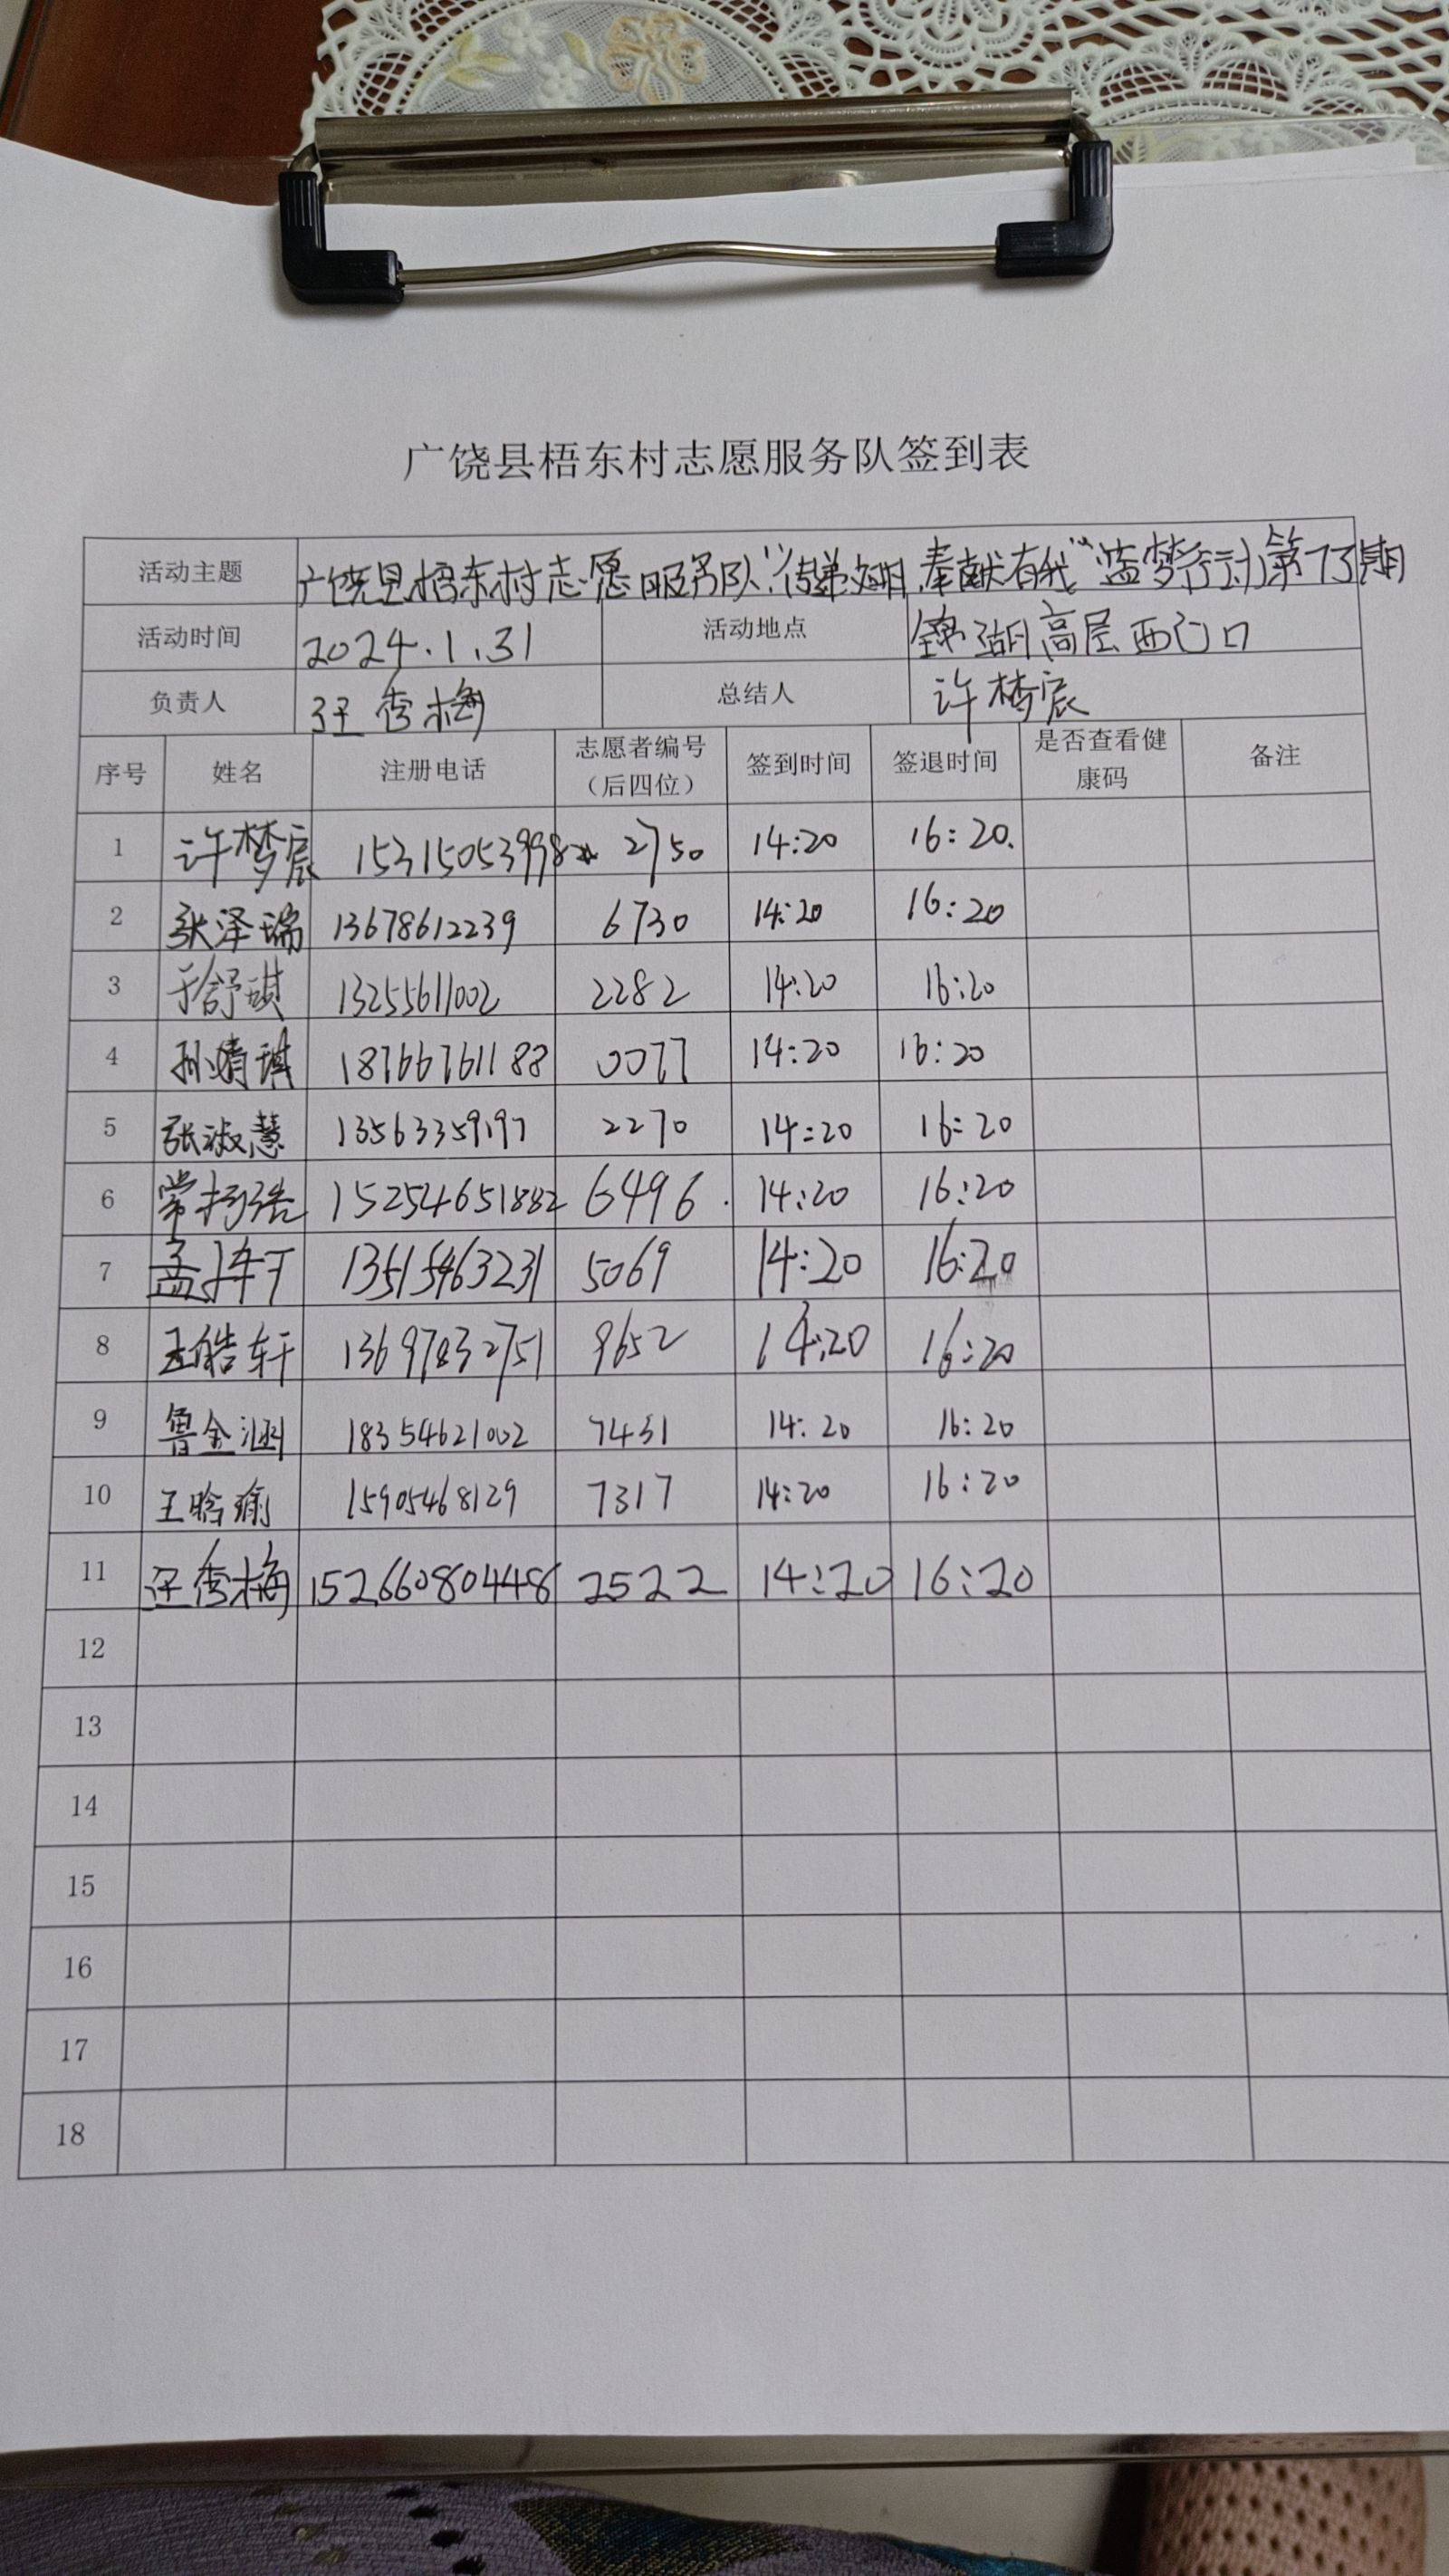 广饶县梧东村志愿服务队签到表
活动主题 广饶县梧东村志愿服务队“传递文明,奉献有我”蓝梦行动第73期
活动时间 2024.1.31 活动地点 锦湖高层西门口
负责人 秀梅 总结人 许梦宸
序号 姓名 注册电话 志愿者编号(后四位) 签到时间 签退时间 是否查看健康码 备注
1 许梦宸 15315053998 2750 14:20 16:20.
2 张泽瑞 13678612239 6730 14:20 16:20
3 于舒琪 13255611002 2282 14:20 16:20
4 孙婧琪 18766761188 0077 14:20 16:20
5 张淑慧 13563359197 2270 14:20 16:20
6 常扬浩 15254651882 6496 14:20 16:20
7 孟 13515463231 5069 14:20 16:20
8 王皓轩 13697832751 9652 14:20 16:20
9 鲁金涵 18354621002 7431 14:20 16:20
10 王晗瑜 15905468129 7317 14:20 16:20
11 秀梅 15266080448 2522 14:20 16:20
12
13
14
15
16
17
18